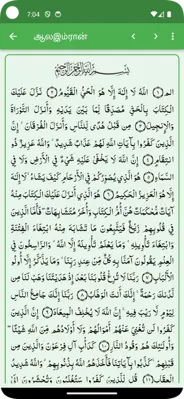 7:04
ஆலஇம்ரான்
بِسْمِ اللَّهِ الرَّحْمَٰنِ الرَّحِيمِ
الم ﴿١﴾ اللَّهُ لَا إِلَٰهَ إِلَّا هُوَ الْحَيُّ الْقَيُّومُ ﴿٢﴾ نَزَّلَ عَلَيْكَ
الْكِتَابَ بِالْحَقِّ مُصَدِّقًا لِّمَا بَيْنَ يَدَيْهِ وَأَنزَلَ التَّوْرَاةَ
وَالْإِنجِيلَ ﴿٣﴾ مِن قَبْلُ هُدًى لِّلنَّاسِ وَأَنزَلَ الْفُرْقَانَ ۗ إِنَّ
الَّذِينَ كَفَرُوا بِآيَاتِ اللَّهِ لَهُمْ عَذَابٌ شَدِيدٌ ۗ وَاللَّهُ عَزِيزٌ ذُو
انتِقَامٍ ﴿٤﴾ إِنَّ اللَّهَ لَا يَخْفَىٰ عَلَيْهِ شَيْءٌ فِي الْأَرْضِ وَلَا فِي
السَّمَاءِ ﴿٥﴾ هُوَ الَّذِي يُصَوِّرُكُمْ فِي الْأَرْحَامِ كَيْفَ يَشَاءُ ۚ لَا إِلَٰهَ
إِلَّا هُوَ الْعَزِيزُ الْحَكِيمُ ﴿٦﴾ هُوَ الَّذِي أَنزَلَ عَلَيْكَ الْكِتَابَ مِنْهُ
آيَاتٌ مُّحْكَمَاتٌ هُنَّ أُمُّ الْكِتَابِ وَأُخَرُ مُتَشَابِهَاتٌ ۖ فَأَمَّا الَّذِينَ
فِي قُلُوبِهِمْ زَيْغٌ فَيَتَّبِعُونَ مَا تَشَابَهَ مِنْهُ ابْتِغَاءَ الْفِتْنَةِ
وَابْتِغَاءَ تَأْوِيلِهِ ۗ وَمَا يَعْلَمُ تَأْوِيلَهُ إِلَّا اللَّهُ ۗ وَالرَّاسِخُونَ فِي
الْعِلْمِ يَقُولُونَ آمَنَّا بِهِ كُلٌّ مِّنْ عِندِ رَبِّنَا ۗ وَمَا يَذَّكَّرُ إِلَّا أُولُو
الْأَلْبَابِ ﴿٧﴾ رَبَّنَا لَا تُزِغْ قُلُوبَنَا بَعْدَ إِذْ هَدَيْتَنَا وَهَبْ لَنَا مِن
لَّدُنكَ رَحْمَةً ۚ إِنَّكَ أَنتَ الْوَهَّابُ ﴿٨﴾ رَبَّنَا إِنَّكَ جَامِعُ النَّاسِ
لِيَوْمٍ لَّا رَيْبَ فِيهِ ۚ إِنَّ اللَّهَ لَا يُخْلِفُ الْمِيعَادَ ﴿٩﴾ إِنَّ الَّذِينَ
كَفَرُوا لَن تُغْنِيَ عَنْهُمْ أَمْوَالُهُمْ وَلَا أَوْلَادُهُم مِّنَ اللَّهِ شَيْئًا ۖ
وَأُولَٰئِكَ هُمْ وَقُودُ النَّارِ ﴿١٠﴾ كَدَأْبِ آلِ فِرْعَوْنَ وَالَّذِينَ مِن
قَبْلِهِمْ ۚ كَذَّبُوا بِآيَاتِنَا فَأَخَذَهُمُ اللَّهُ بِذُنُوبِهِمْ ۗ وَاللَّهُ شَدِيدُ
الْعِقَابِ ﴿١١﴾ قُل لِّلَّذِينَ كَفَرُوا سَتُغْلَبُونَ وَتُحْشَرُونَ إِلَىٰ